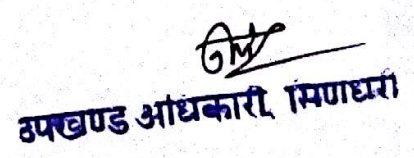 उपखण्ड अधिकारी, मिणधरा